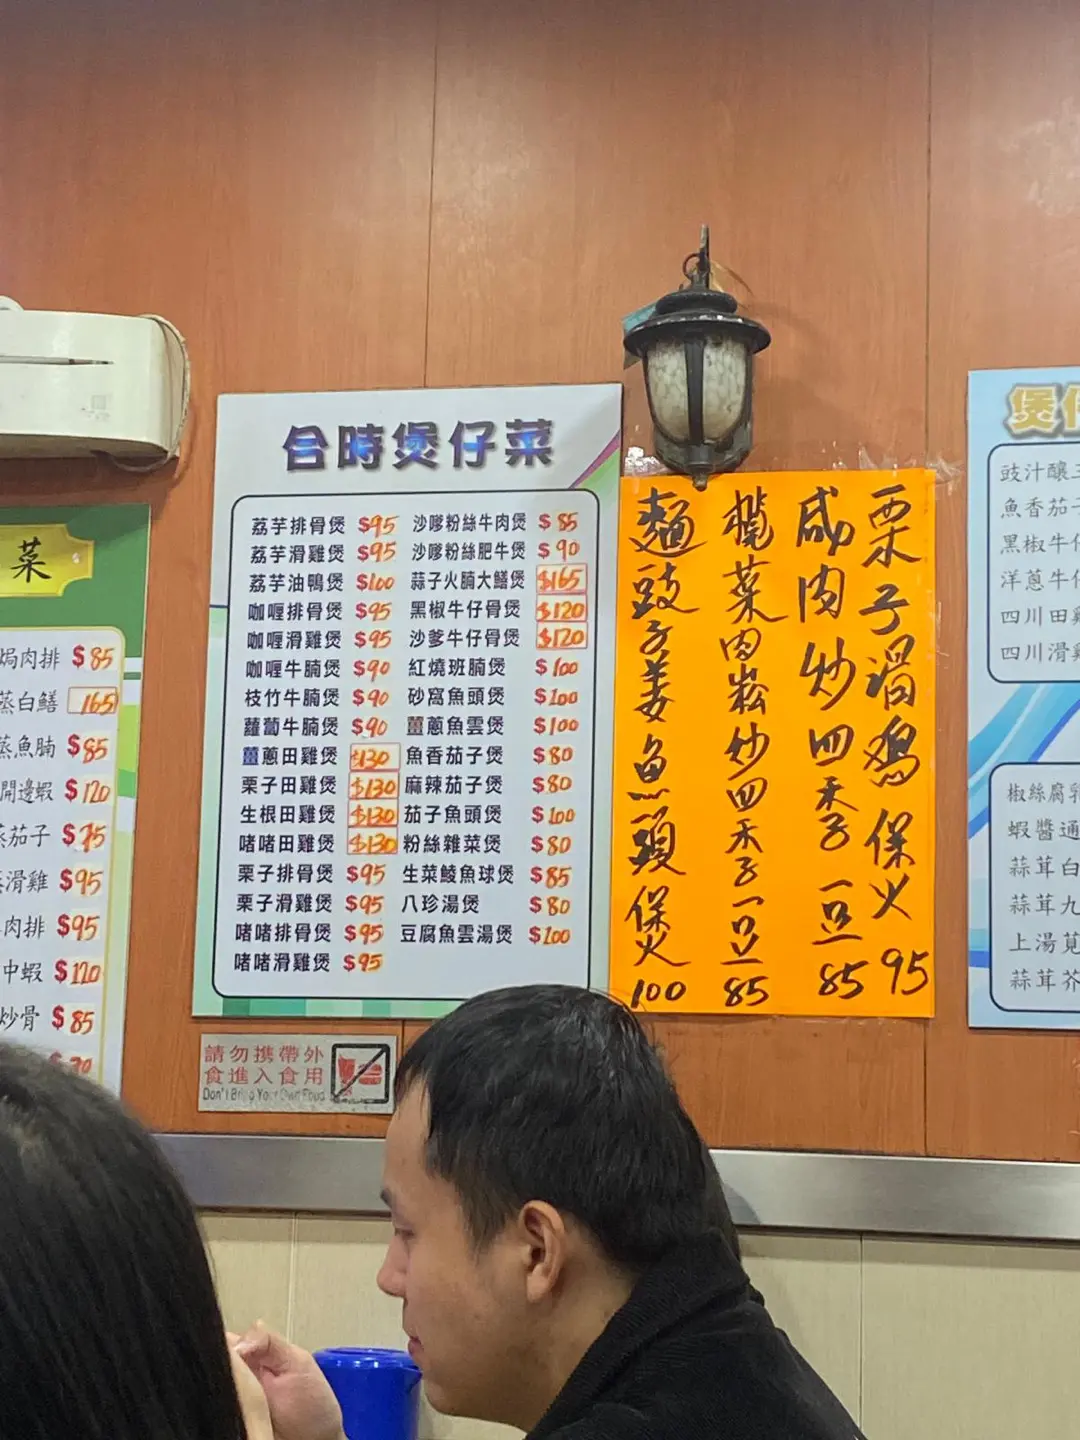 菜
焗肉排 $85
蒸白鱔 165
蒸魚腩 $85
開邊蝦 $120
蒸茄子 $75
滑雞 $95
肉排 $95
中蝦 $120
炒骨 $85
合時煲仔菜
荔芋排骨煲 $95
荔芋滑雞煲 $95
荔芋油鴨煲 $100
咖喱排骨煲 $95
咖喱滑雞煲 $95
咖喱牛腩煲 $90
枝竹牛腩煲 $90
蘿蔔牛腩煲 $90
薑蔥田雞煲 $130
栗子田雞煲 $130
生根田雞煲 $130
啫啫田雞煲 $130
栗子排骨煲 $95
栗子滑雞煲 $95
啫啫排骨煲 $95
啫啫滑雞煲 $95
沙嗲粉絲牛肉煲 $85
沙嗲粉絲肥牛煲 $90
蒜子火腩大鱔煲 $165
黑椒牛仔骨煲 $120
沙爹牛仔骨煲 $120
紅燒班腩煲 $100
砂窩魚頭煲 $100
薑蔥魚雲煲 $100
魚香茄子煲 $80
麻辣茄子煲 $80
茄子魚頭煲 $100
粉絲雜菜煲 $80
生菜鯪魚球煲 $85
八珍湯煲 $80
豆腐魚雲湯煲 $100
請勿攜帶外
食進入食用
Don't Bring Your Own Food
栗子滑鸡保火 95
咸肉炒四禾子豆 85
欖菜肉崧炒四禾子豆 85
麵豉子姜魚頭保火 100
煲仔
豉汁釀三
魚香茄子
黑椒牛仔
洋蔥牛仔
四川田雞
四川滑雞
椒絲腐乳
蝦醬通
蒜茸白
蒜茸九
上湯莧
蒜茸芥